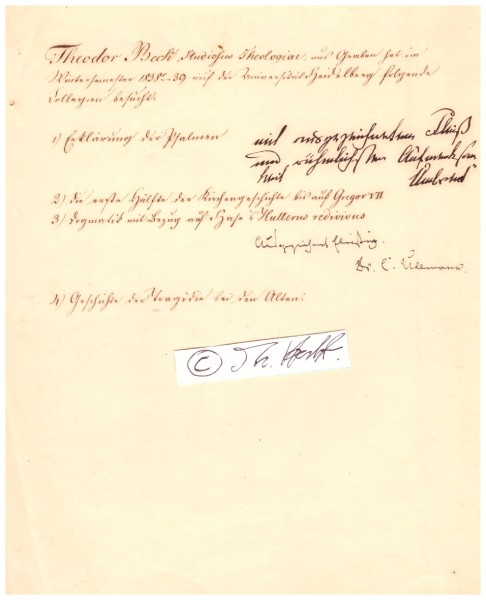 Theodor Beck, Studiosus Theologiae, aus Graben hat im
Wintersemester 1838–39 auf der Universität Heidelberg folgende
Collegien besucht:
1) Erklärung der Psalmen
mit ausgezeichnetem Fleiß
und rühmlichster Aufmerksam
keit
Umbreit
2) Die erste Hälfte der Kirchengeschichte bis auf Gregor VII
3) Dogmatik mit Bezug auf Hase's Hutterus redivivus
Ausgezeichnet fleißig.
Dr. C. Ullmann.
4) Geschichte der Tragödie bei den Alten.
© Th.